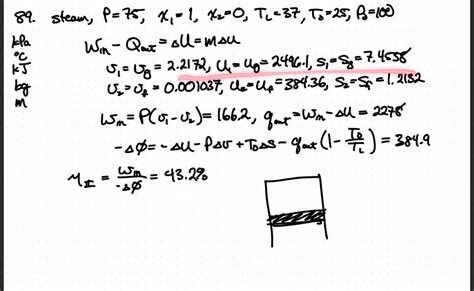 89. steam, P=75, x₁=1, x₂=0, T_L=37, T₀=25, P₀=100
kPa
°C
kJ
kg
m
W_in - Q_out = ΔU = mΔu
v₁=v_g=2.2172, u₁=u_g=2496.1, s₁=s_g=7.4558
v₂=v_f=0.001037, u₂=u_f=384.36, s₂=s_f=1.2132
w_in=P(v₁-v₂)=166.2, q_out=w_in-Δu=2278
-Δφ=-Δu-P₀Δv+T₀Δs-q_out(1-T₀/T_L)=384.9
η_II = w_in/-Δφ = 43.2%